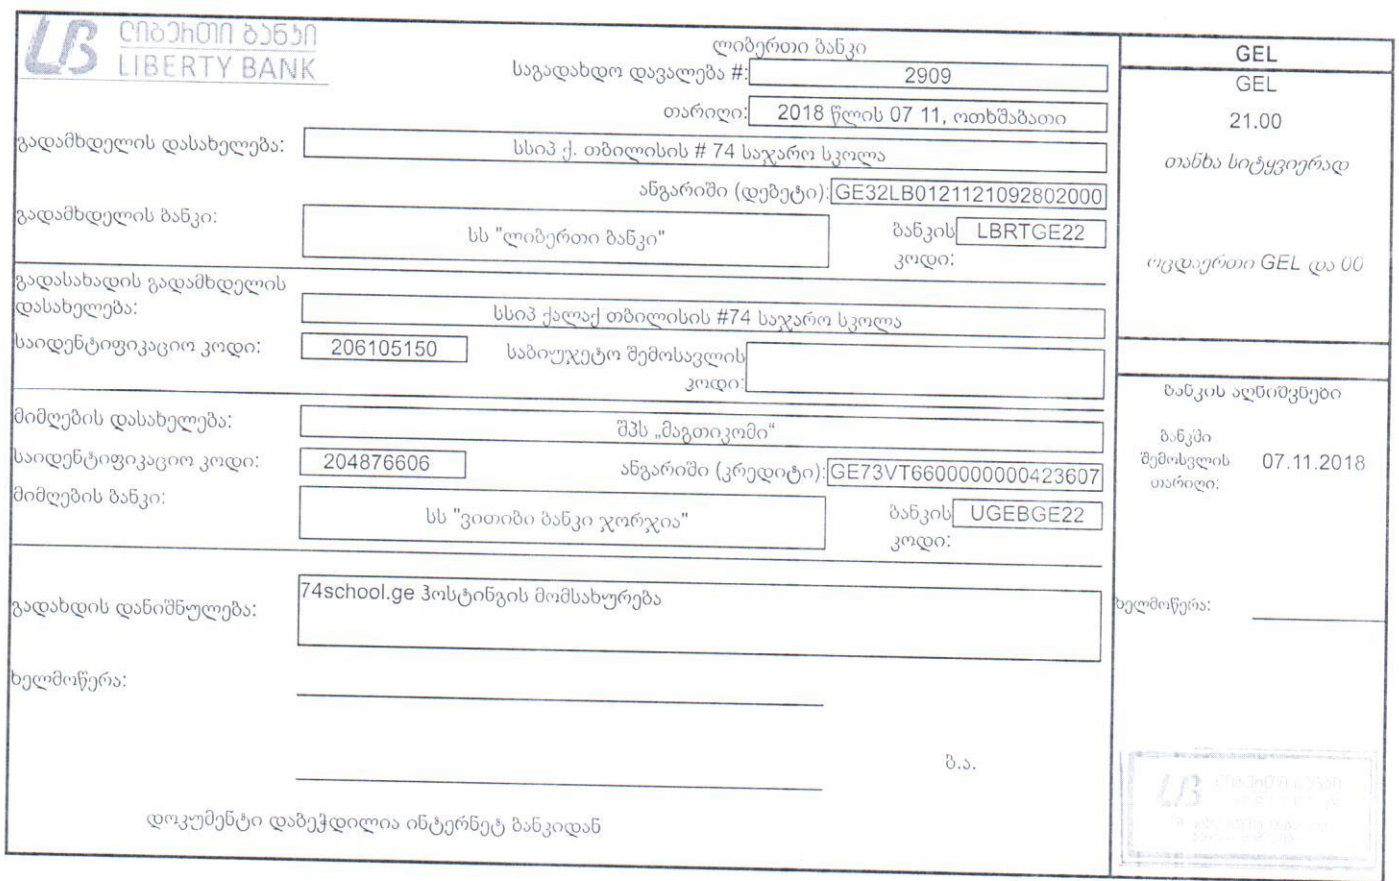 ლიბერთი ბანკი
LIBERTY BANK
ლიბერთი ბანკი
საგადახდო დავალება #: 2909
თარიღი: 2018 წლის 07 11, ოთხშაბათი
გადამხდელის დასახელება: სსიპ ქ. თბილისის # 74 საჯარო სკოლა
ანგარიში (დებეტი): GE32LB0121121092802000
გადამხდელის ბანკი: სს "ლიბერთი ბანკი" ბანკის კოდი: LBRTGE22
გადასახადის გადამხდელის
დასახელება: სსიპ ქალაქ თბილისის #74 საჯარო სკოლა
საიდენტიფიკაციო კოდი: 206105150 საბიუჯეტო შემოსავლის
კოდი:
მიმღების დასახელება: შპს „მაგთიკომი“
საიდენტიფიკაციო კოდი: 204876606 ანგარიში (კრედიტი): GE73VT6600000000423607
მიმღების ბანკი: სს "ვითიბი ბანკი ჯორჯია" ბანკის კოდი: UGEBGE22
გადახდის დანიშნულება: 74school.ge ჰოსტინგის მომსახურება
ხელმოწერა:
ბ.ა.
დოკუმენტი დაბეჭდილია ინტერნეტ ბანკიდან
GEL
GEL
21.00
თანხა სიტყვიერად
ოცდაერთი GEL და 00
ბანკის აღნიშვნები
ბანკში
შემოსვლის 07.11.2018
თარიღი:
ხელმოწერა:
LB